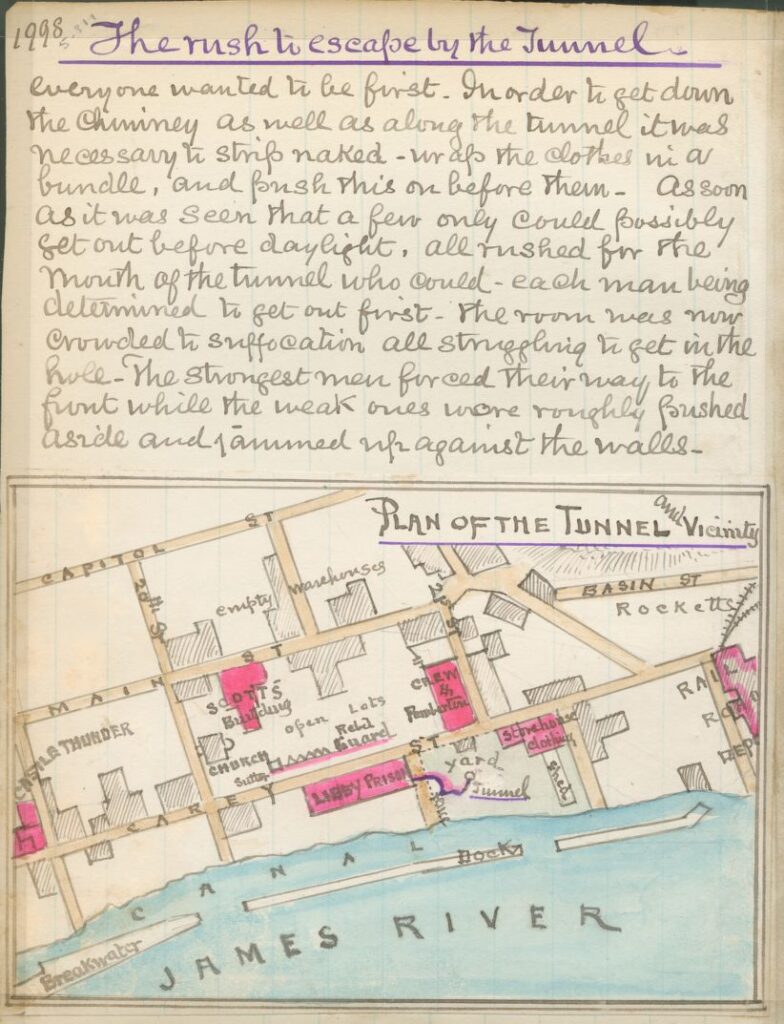 1998
The rush to escape by the Tunnel
everyone wanted to be first - In order to get down
the Chimney as well as along the tunnel it was
necessary to strip naked - wrap the clothes in a
bundle, and push this on before them - As soon
as it was seen that a few only could possibly
get out before daylight, all rushed for the
Mouth of the tunnel who could - each man being
determined to get out first - The room was now
crowded to suffocation all struggling to get in the
hole - The strongest men forced their way to the
front while the weak ones were roughly pushed
aside and jammed up against the walls -
PLAN OF THE TUNNEL and Vicinity
CAPITOL ST
20th St
empty warehouses
21st ST
BASIN ST
Rocketts
MAIN ST
SCOTTS
Building
open Lots
Rebel
Guard
CREW
&
Pemberton
RAIL
ROAD
DEPO
CASTLE THUNDER
CHURCH
Sutler
Storehouse
clothing
yard
Shed
LIBBY PRISON
Tunnel
CAREY ST.
CANAL
Dock
JAMES RIVER
Breakwater